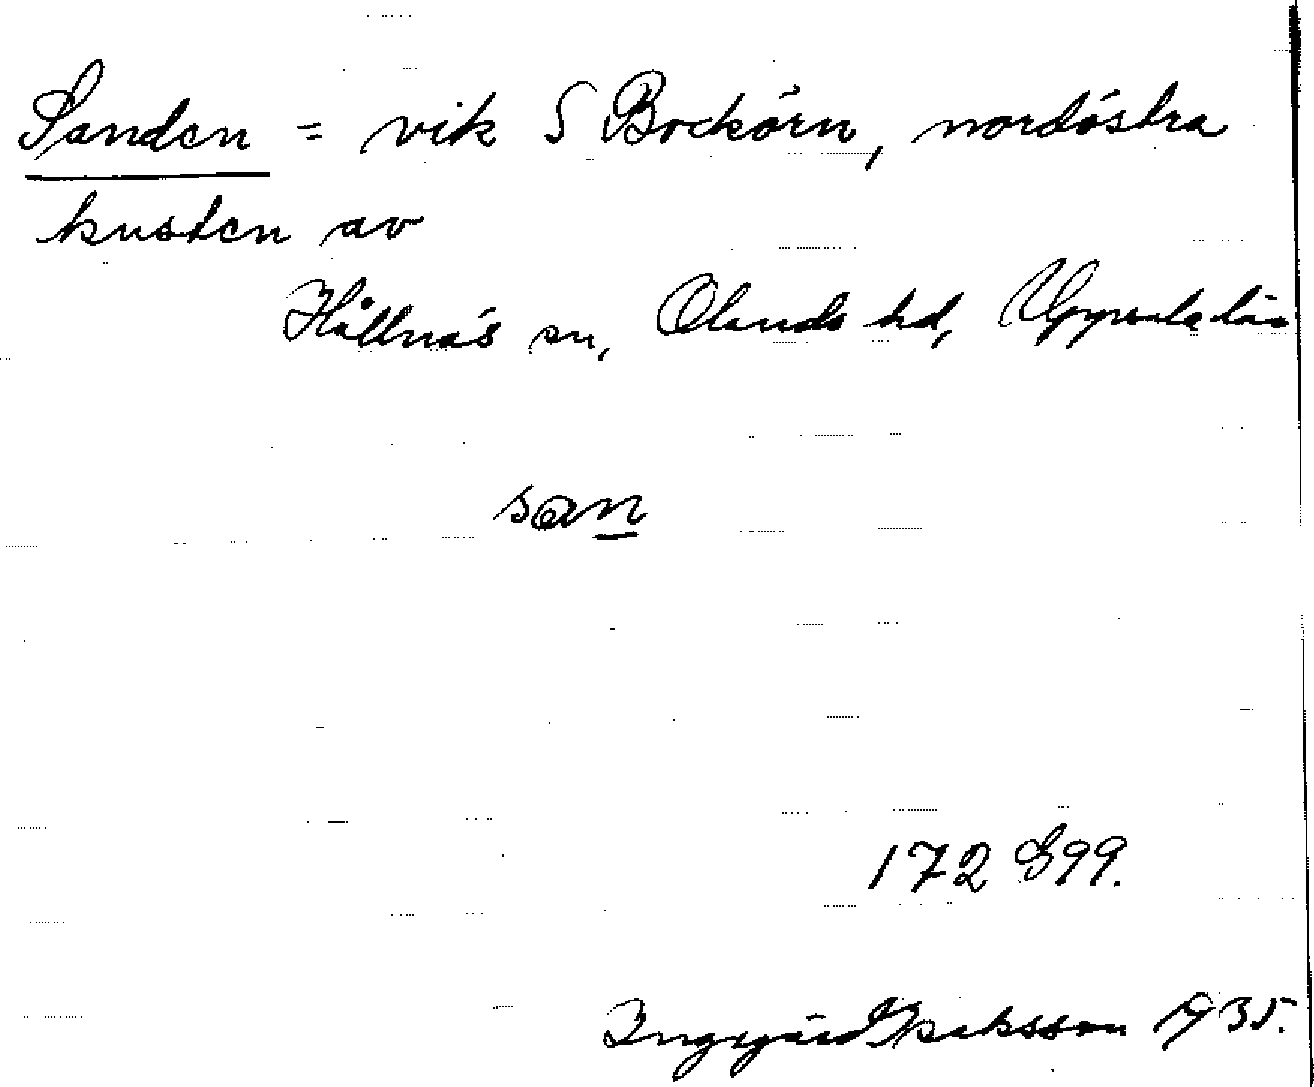 Sanden = vik S Bockörn, nordöstra
kusten av
Hållnäs sn, Olands hd, Uppsala län
san
172 899.
Ingegärd Isaksson 1935.